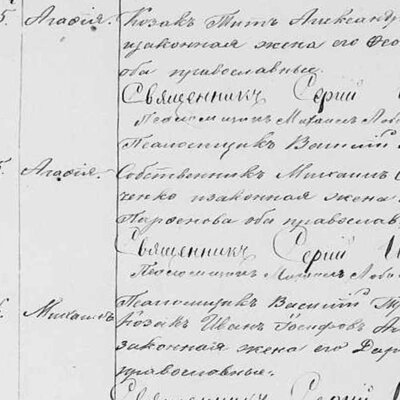 5. Агафія. Козакъ Титъ Александр
изаконная жена его Ѳео
оба православные.
Священникъ Сергій
Псаломщикъ Михаилъ Лоб
Псаломщикъ Василій
Агафія. Собственникъ Михаилъ
ченко изаконная жена
Парѳенова оба православ
Священникъ Сергій
Псаломщикъ Михаилъ Лоба
Псаломщикъ Василій
Михаилъ Козакъ Иванъ Іосифовъ
законная жена его Дар
православные.
Священникъ Сергій